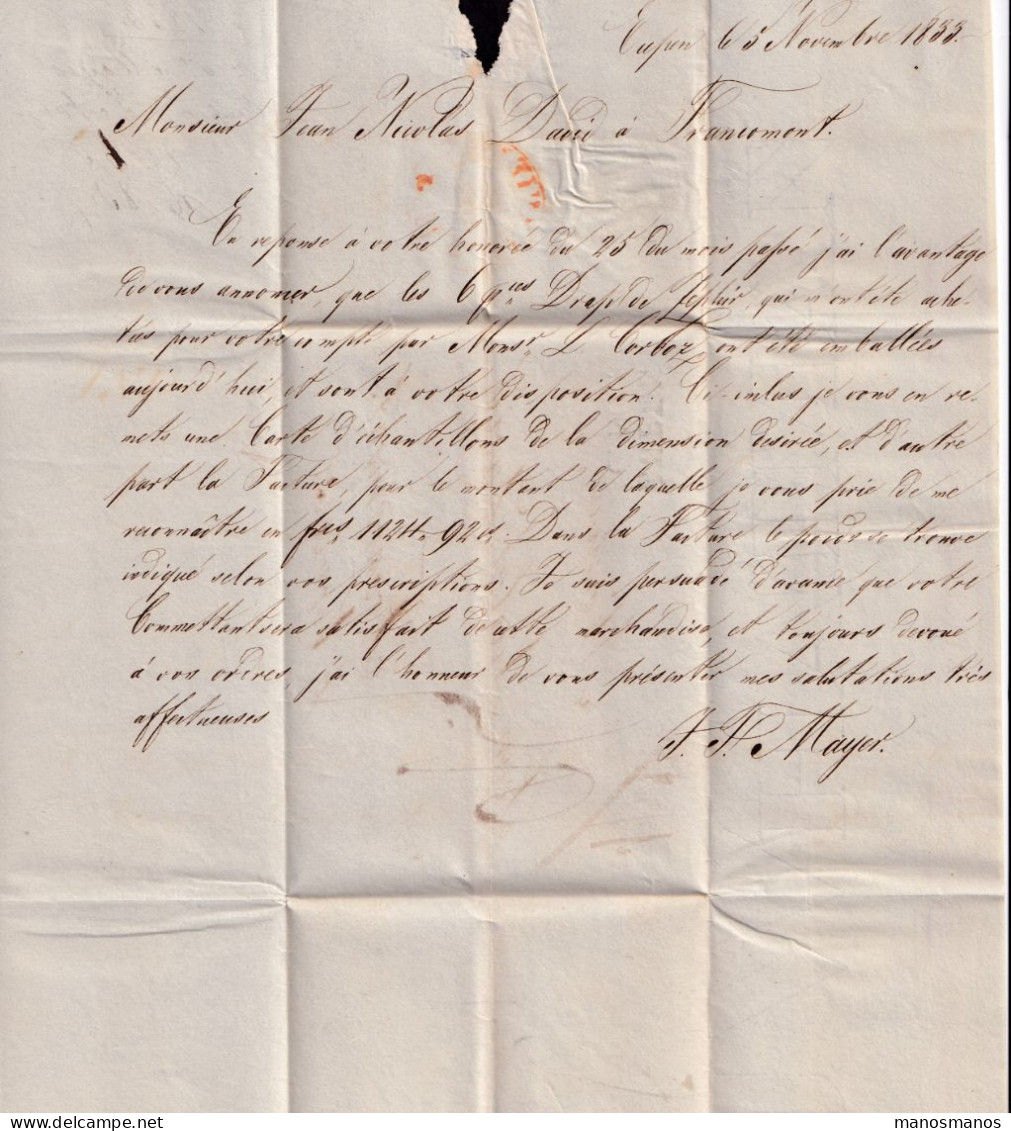 Eupen le 5 Novembre 1833.
Monsieur Jean Nicolas David à Francomont.
En reponse à votre honorée du 25 du mois passé j'ai l'avantage
de vous annoncer, que les 6 p.ces Drap de Zephir, qui m'ont été ache-
tées pour votre compte par Monsr. L. Corboz, ont été emballées
aujourd'hui, et sont à votre disposition. Ci-inclus je vous en re-
mets une Carte d'échantillons de la dimension desirée, et d'autre
part la Facture, pour le montant de laquelle je vous prie de me
reconnaître en frcs. 1124. 92 cs. Dans la Facture le poids se trouve
indiqué selon vos prescriptions. Je suis persuadé d'avance que votre
Commettant sera satisfait de cette marchandise, et toujours devoué
à vos ordres, j'ai l'honneur de vous présenter mes salutations très
affectueuses
J. F. Mayer.
manosmanos